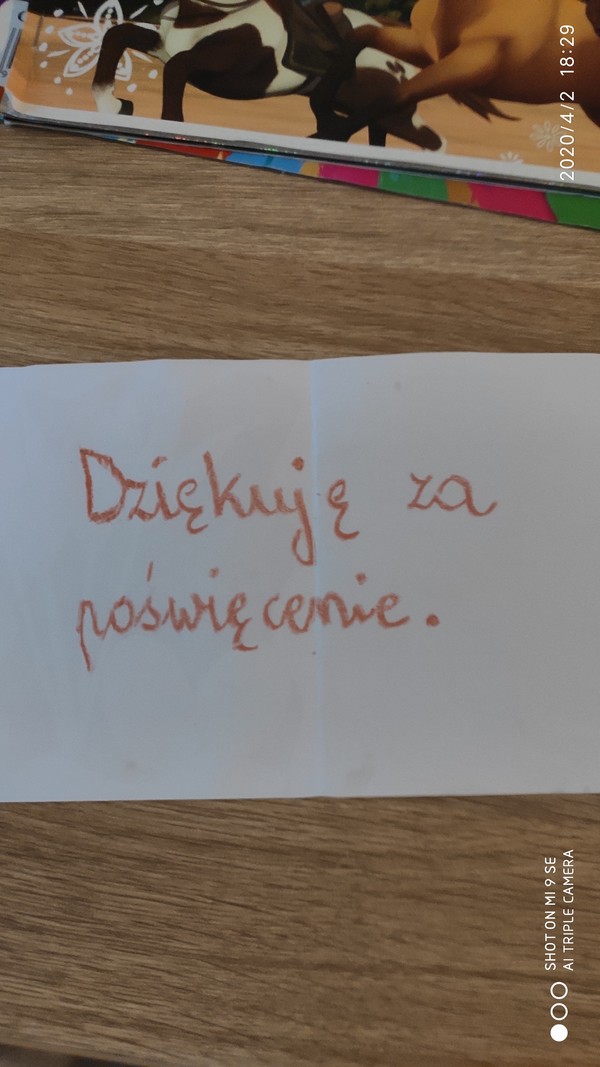 2020/4/2 18:29
Dziękuję za
poświęcenie.
SHOT ON MI 9 SE
AI TRIPLE CAMERA